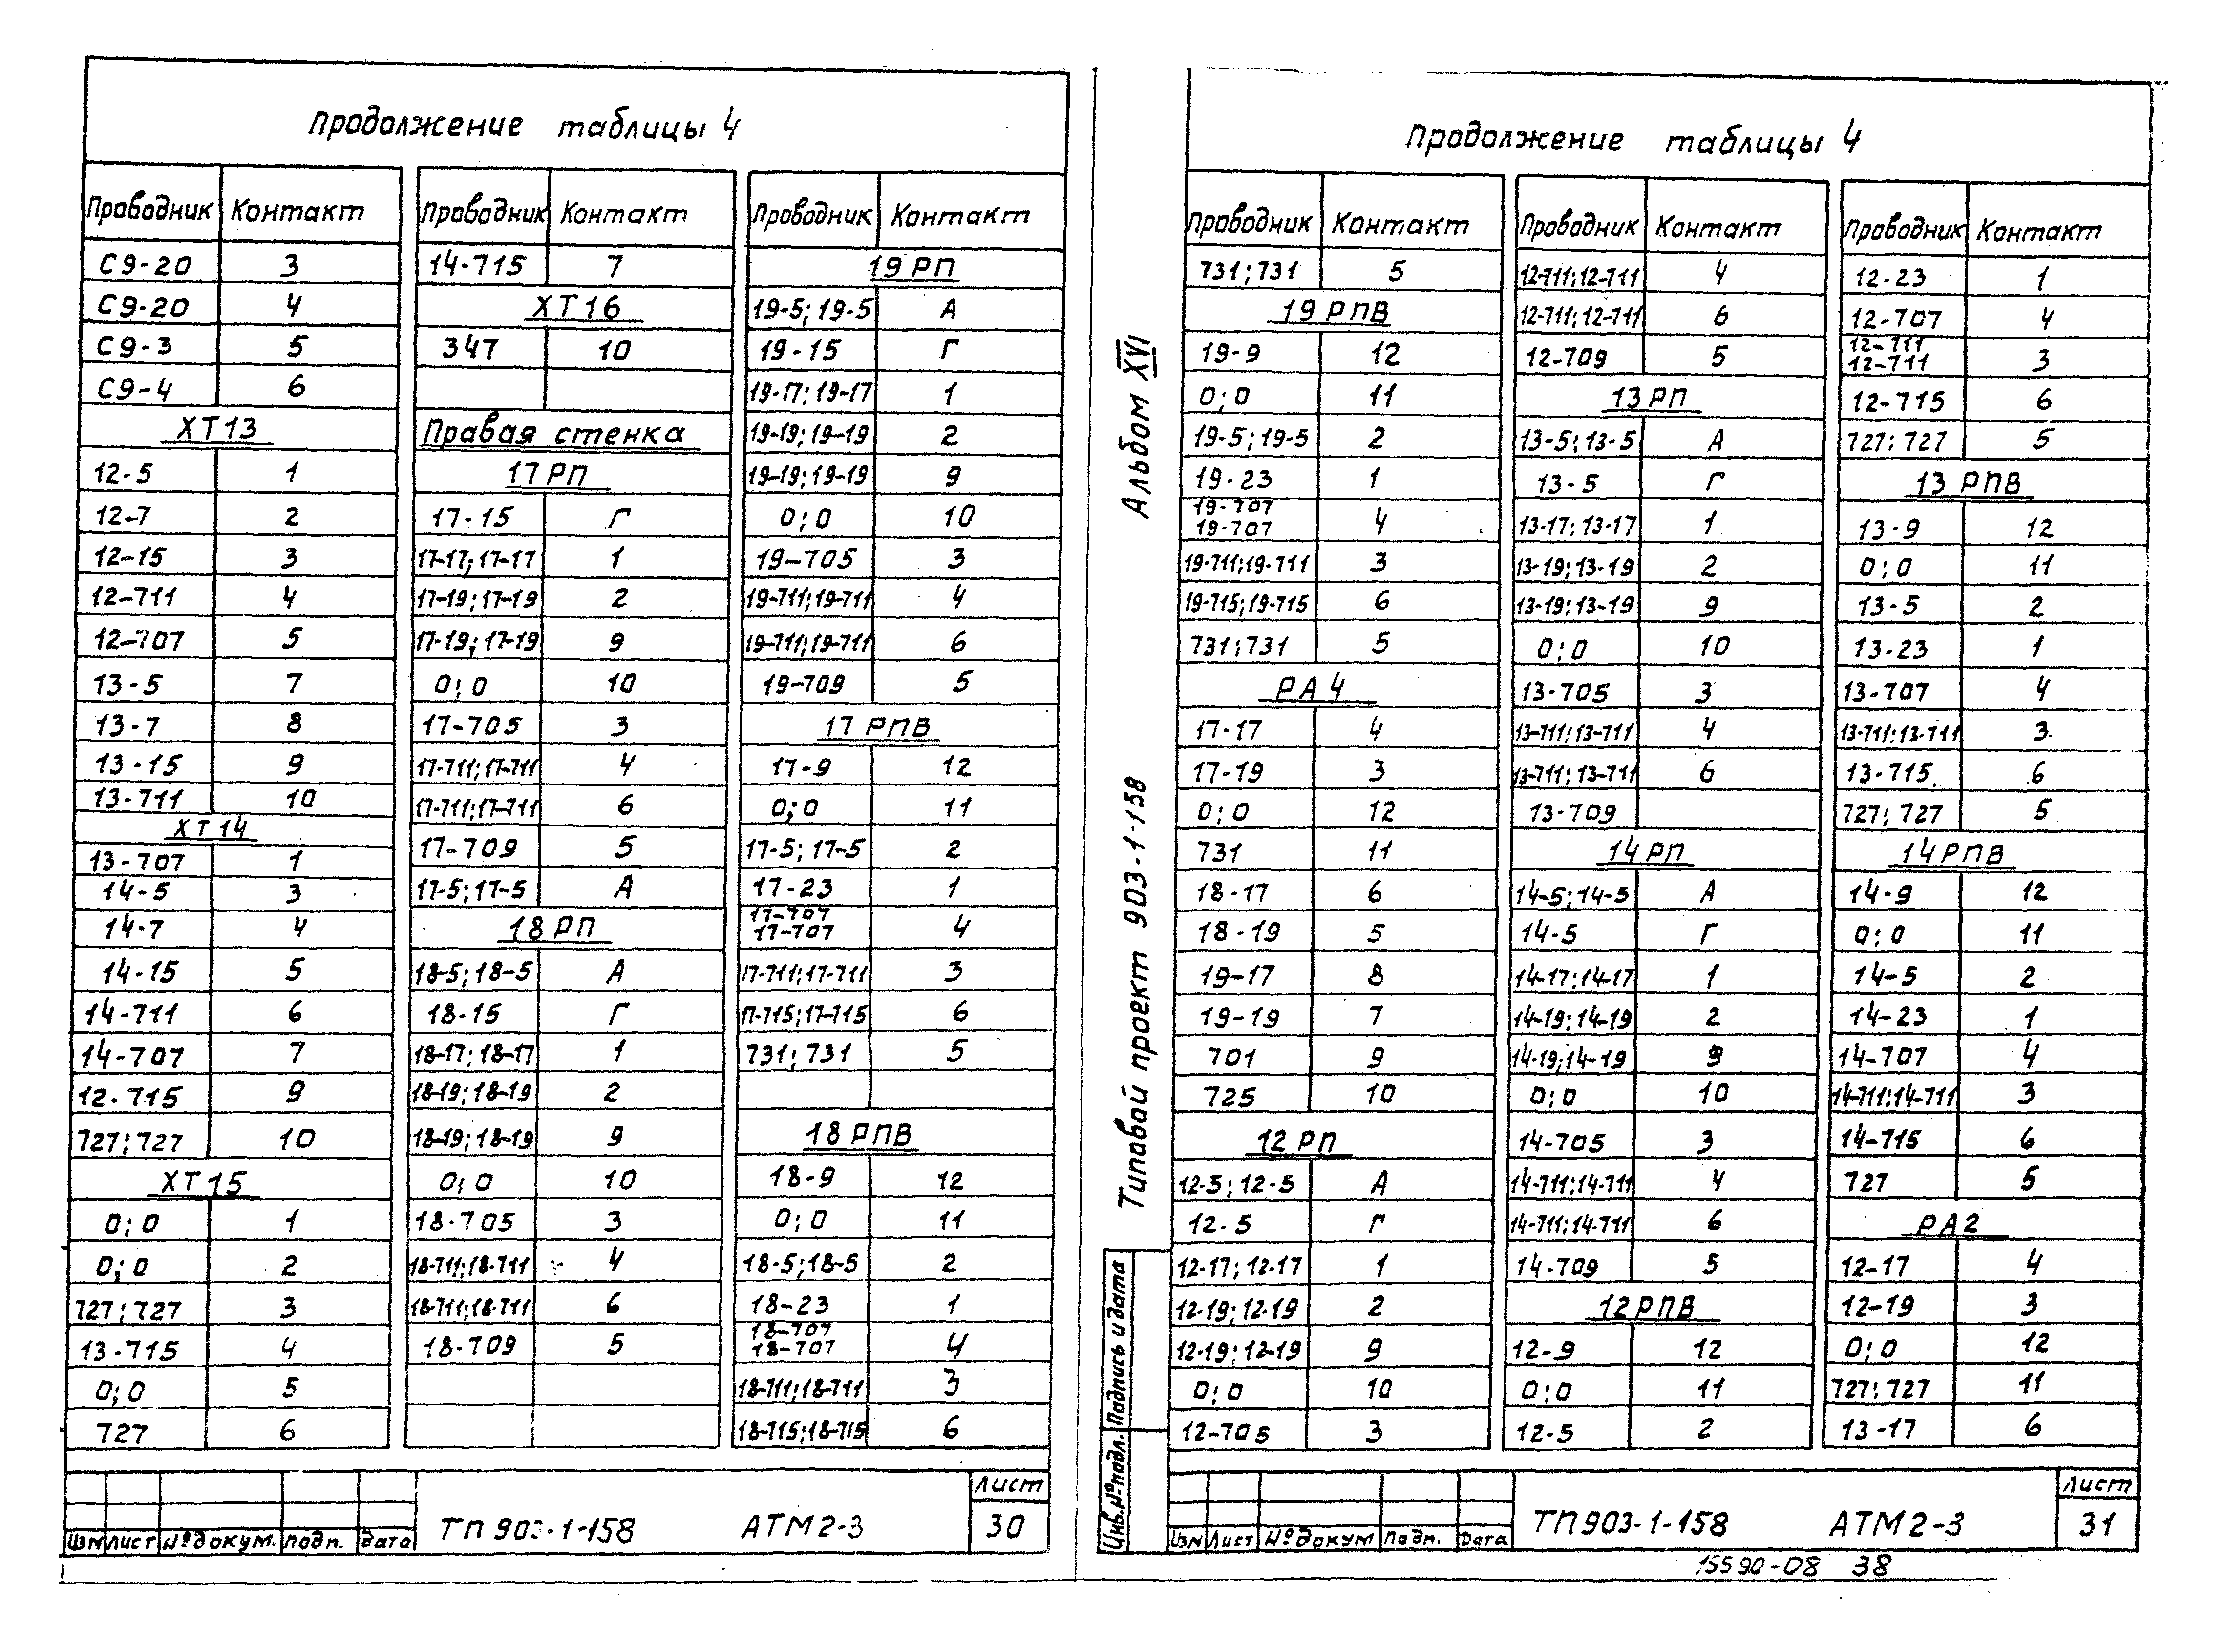 Продолжение таблицы 4
Проводник Контакт
С9-20 3
С9-20 4
С9-3 5
С9-4 6
ХТ13
12-5 1
12-7 2
12-15 3
12-711 4
12-707 5
13-5 7
13-7 8
13-15 9
13-711 10
ХТ14
13-707 1
14-5 3
14-7 4
14-15 5
14-711 6
14-707 7
12-715 9
727; 727 10
ХТ15
0; 0 1
0; 0 2
727; 727 3
13-715 4
0; 0 5
727 6
Проводник Контакт
14-715 7
ХТ16
347 10
Правая стенка
17РП
17-15 Г
17-17; 17-17 1
17-19; 17-19 2
17-19; 17-19 9
0; 0 10
17-705 3
17-711; 17-711 4
17-711; 17-711 6
17-709 5
17-5; 17-5 А
18РП
18-5; 18-5 А
18-15 Г
18-17; 18-17 1
18-19; 18-19 2
18-19; 18-19 9
0; 0 10
18-705 3
18-711; 18-711 4
18-711; 18-711 6
18-709 5
Проводник Контакт
19РП
19-5; 19-5 А
19-15 Г
19-17; 19-17 1
19-19; 19-19 2
19-19; 19-19 9
0; 0 10
19-705 3
19-711; 19-711 4
19-711; 19-711 6
19-709 5
17РПВ
17-9 12
0; 0 11
17-5; 17-5 2
17-23 1
17-707
17-707 4
17-711; 17-711 3
17-715; 17-715 6
731; 731 5
18РПВ
18-9 12
0; 0 11
18-5; 18-5 2
18-23 1
18-707
18-707 4
18-711; 18-711 3
18-715; 18-715 6
Изм Лист № докум. Подп. Дата
ТП 903-1-158 АТМ2-3
Лист
30
Альбом XVI
Типавой проект 903-1-158
Подпись и дата
Инв.№подл.
Продолжение таблицы 4
Проводник Контакт
731; 731 5
19РПВ
19-9 12
0; 0 11
19-5; 19-5 2
19-23 1
19-707
19-707 4
19-711; 19-711 3
19-715; 19-715 6
731; 731 5
РА4
17-17 4
17-19 3
0; 0 12
731 11
18-17 6
18-19 5
19-17 8
19-19 7
701 9
725 10
12РП
12-5; 12-5 А
12-5 Г
12-17; 12-17 1
12-19; 12-19 2
12-19; 12-19 9
0; 0 10
12-705 3
Проводник Контакт
12-711; 12-711 4
12-711; 12-711 6
12-709 5
13РП
13-5; 13-5 А
13-5 Г
13-17; 13-17 1
13-19; 13-19 2
13-19; 13-19 9
0; 0 10
13-705 3
13-711; 13-711 4
13-711; 13-711 6
13-709
14РП
14-5; 14-5 А
14-5 Г
14-17; 14-17 1
14-19; 14-19 2
14-19; 14-19 9
0; 0 10
14-705 3
14-711; 14-711 4
14-711; 14-711 6
14-709 5
12РПВ
12-9 12
0; 0 11
12-5 2
Проводник Контакт
12-23 1
12-707 4
12-711
12-711 3
12-715 6
727; 727 5
13РПВ
13-9 12
0; 0 11
13-5 2
13-23 1
13-707 4
13-711; 13-711 3
13-715 6
727; 727 5
14РПВ
14-9 12
0; 0 11
14-5 2
14-23 1
14-707 4
14-711; 14-711 3
14-715 6
727 5
РА2
12-17 4
12-19 3
0; 0 12
727; 727 11
13-17 6
Изм Лист № докум Подп. Дата
ТП903-1-158 АТМ2-3
Лист
31
15590-08 38